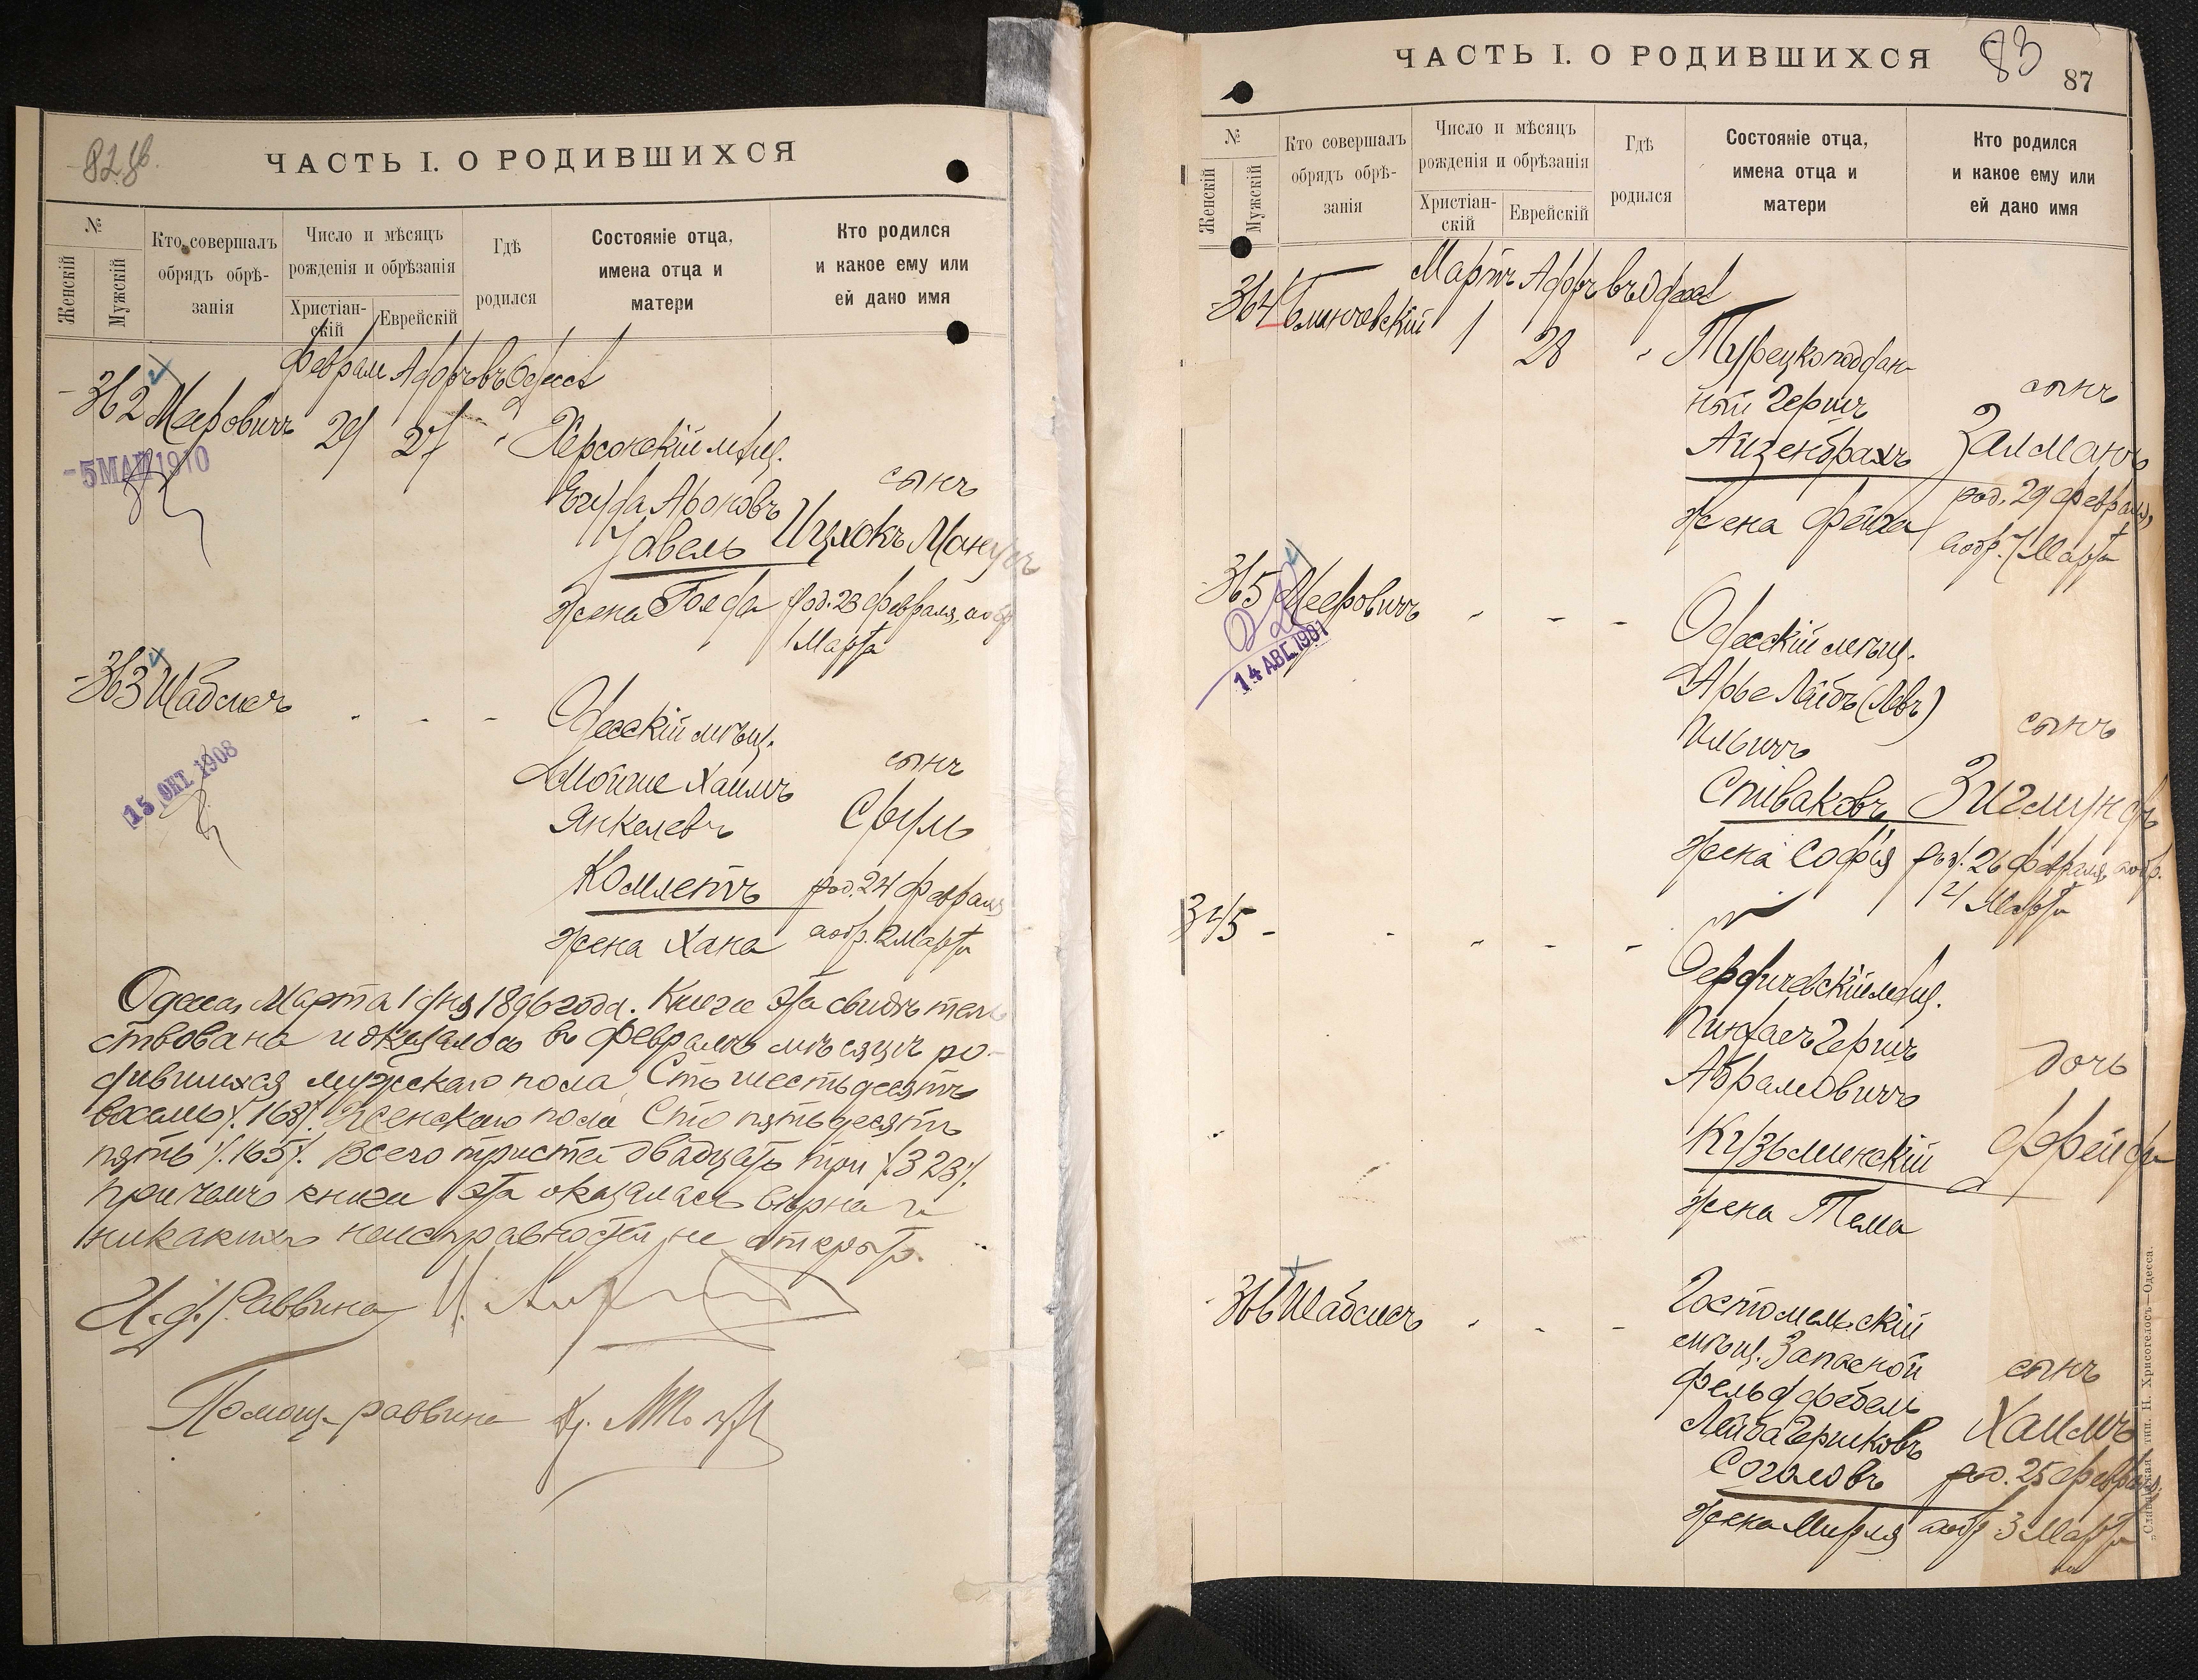 82 об.
ЧАСТЬ I. О РОДИВШИХСЯ
№
Женскій
Мужскій
Кто совершалъ
обрядъ обрѣ-
занія
Число и мѣсяцъ
рожденія и обрѣзанія
Христіан-
скій
Еврейскій
Гдѣ
родился
Состояніе отца,
имена отца и
матери
Кто родился
и какое ему или
ей дано имя
Февраля Адаръ въ Одессѣ
362 Мееровичъ 29 27 Херсонскій мѣщ.
-5 МАЙ 1910
сынъ
Егуда Ароновъ
Ицхокъ
жена Голда род. 23 Февраля, аобр
1 Марта
363 Шабсисъ - - -
Одесскій мѣщ.
15 ОКТ. 1908
Мойше Хаимъ
сынъ
Янкелевъ
Сруль
Комлетъ род. 24 Февраля
жена Хана аобр. 2 Марта
Одесса, Марта 1 дня 1896 года. Книга эта свидѣтель
ствована и оказалось въ Февралѣ мѣсяцѣ ро-
дившихся мужскаго пола Сто шестьдесятъ
восемь /168/. Женскаго пола Сто пятьдесятъ
пять Всего триста двадцать три /323/.
При чемъ книга эта оказалась вѣрна и
никакихъ неисправностей не открыто.
И. д. Раввина
Помощ. раввина
ЧАСТЬ I. О РОДИВШИХСЯ
83
87
№
Женскій
Мужскій
Кто совершалъ
обрядъ обрѣ-
занія
Число и мѣсяцъ
рожденія и обрѣзанія
Христіан-
скій
Еврейскій
Гдѣ
родился
Состояніе отца,
имена отца и
матери
Кто родился
и какое ему или
ей дано имя
Мартъ Адаръ въ Одессѣ
364 1 28 Турецкоподдан-
ный Гершъ
сынъ
Айзенбрахъ
Залманъ
род. 29 Февраля,
жена Фейга
аобр. 7 Марта
365 Мееровичъ - - -
14 АВГ. 1901
Одесскій мѣщ.
Арье Лейбъ (Левъ)
сынъ
Ильичъ
Спиваковъ Зигмундъ
жена Софія род. 26 Февраля, аобр.
4 Марта
345 - - - - -
Бердичевскій мѣщ.
Пинхасъ Гершъ
дочь
Абрамовичъ
Кузьминскій Фрейда
жена Тема
366 Шабсисъ - - -
Гостомельскій
мѣщ. Запасной
сынъ
Фельдфебель
Лейба Гершковъ Хаимъ
Соголовъ род. 25 Февраля,
жена Мирля аобр. 3 Марта
„Славянская" тип. Н. Хрисогелосъ—Одесса.